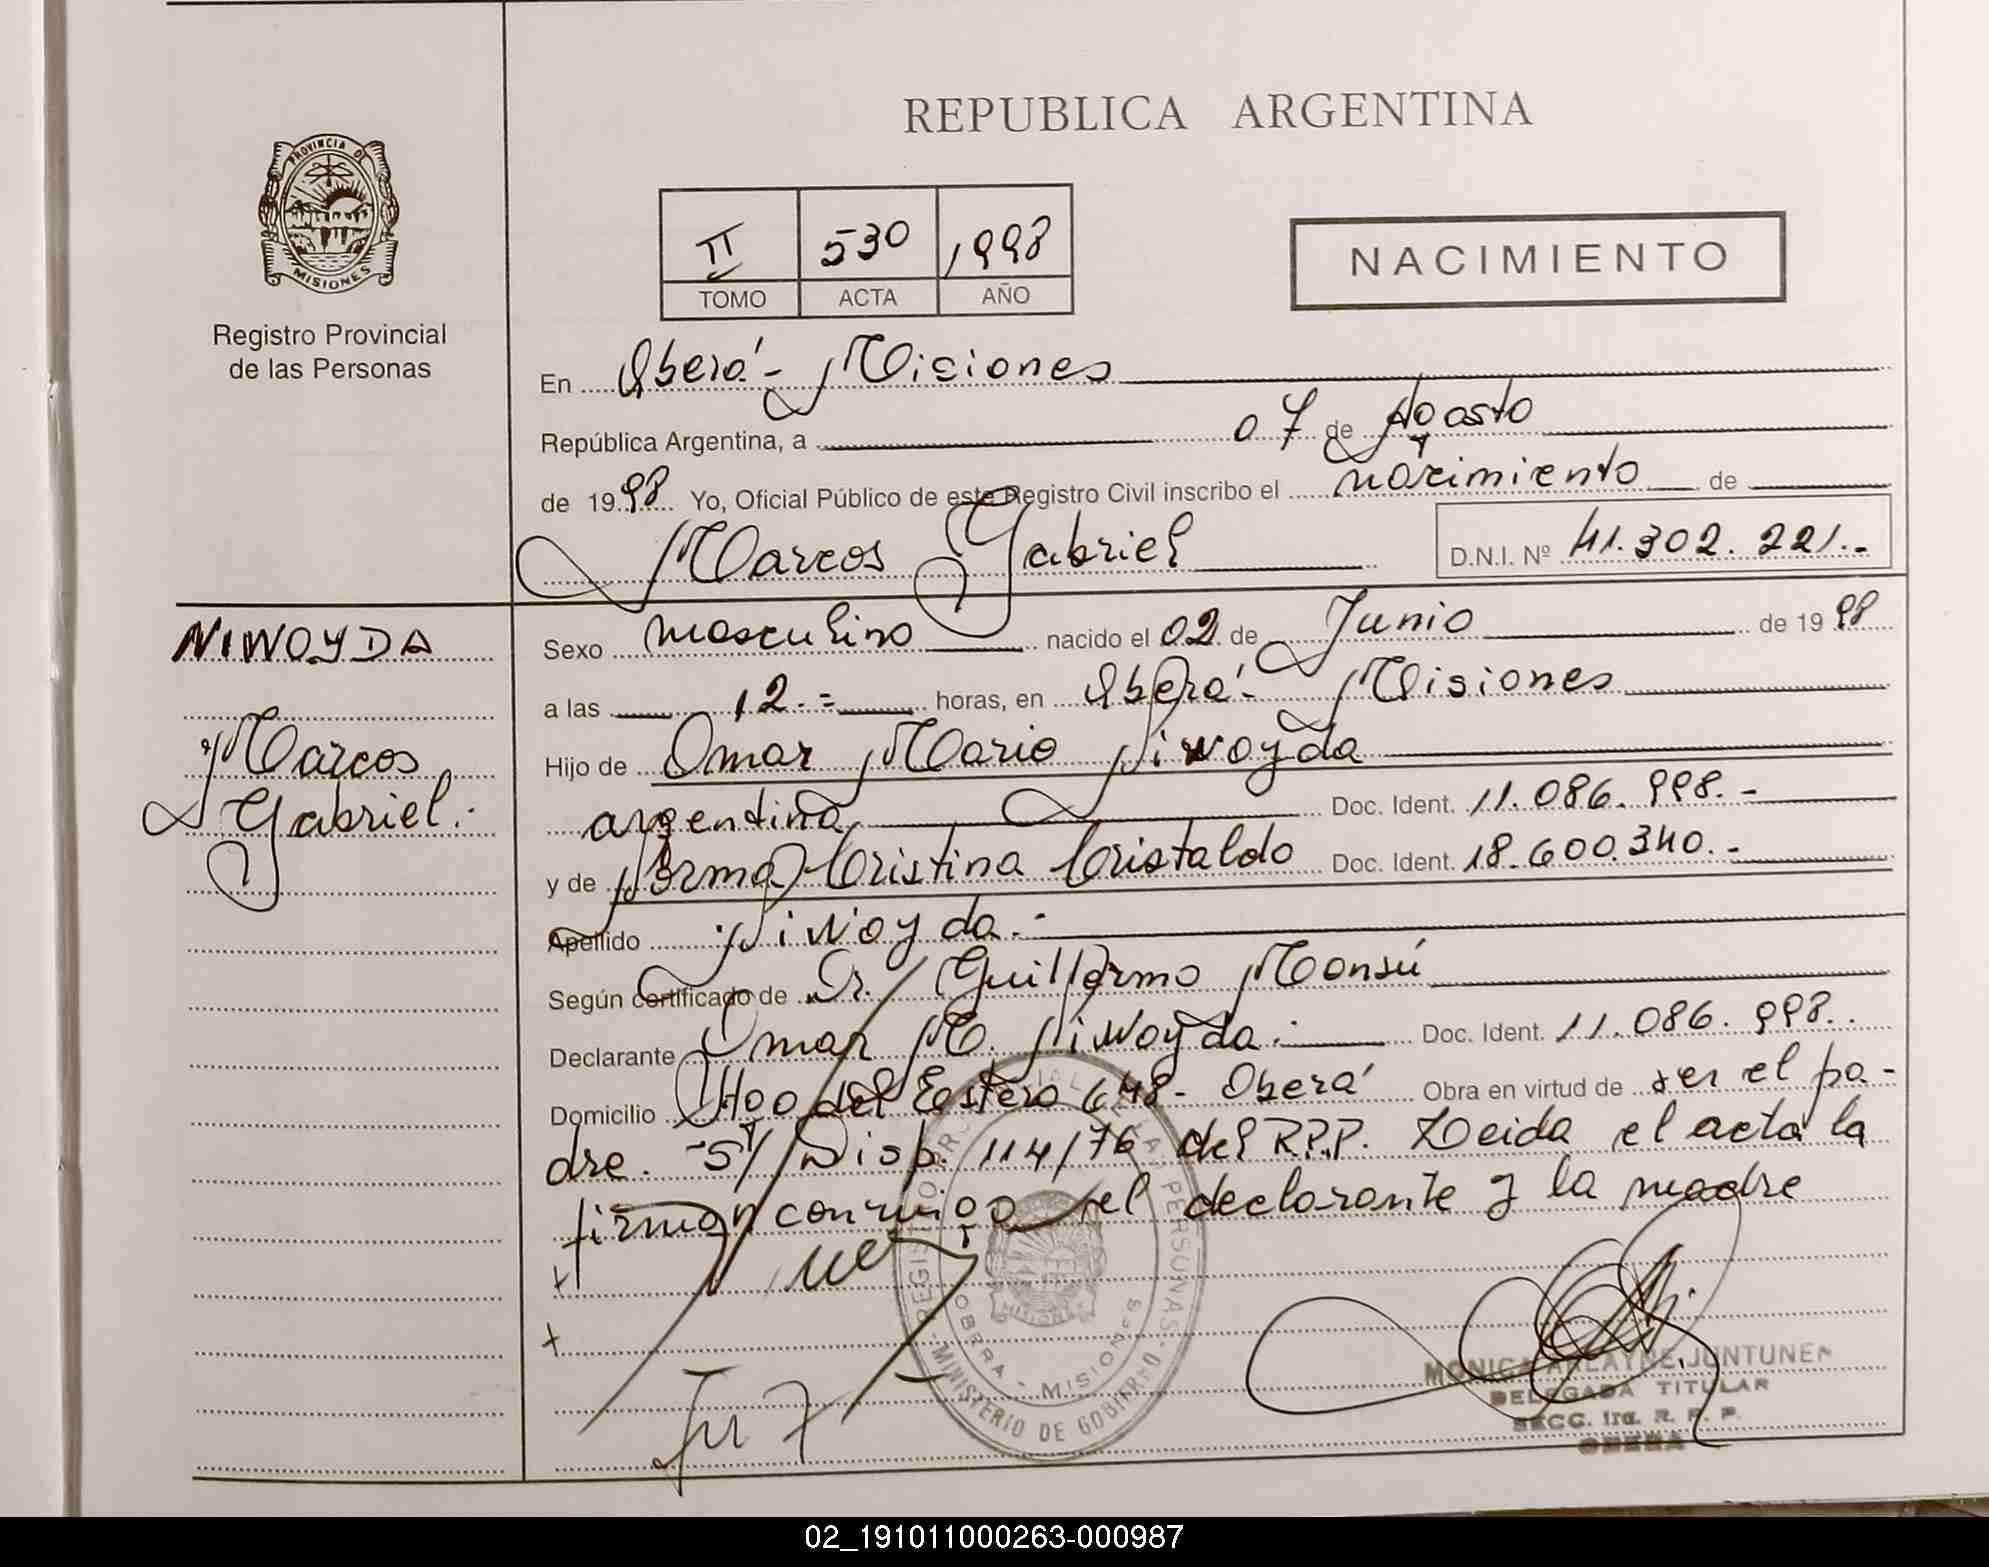 REPUBLICA ARGENTINA
PROVINCIA DE
MISIONES
Registro Provincial
de las Personas
II 530 1998
TOMO ACTA AÑO
NACIMIENTO
En Oberá - Misiones
República Argentina, a 07 de Agosto
de 1998 Yo, Oficial Público de este Registro Civil inscribo el nacimiento de
Marcos Gabriel D.N.I. Nº 41.302.221.-
NIWOYDA
Marcos
Gabriel.
Sexo masculino nacido el 02 de Junio de 1998
a las 12.= horas, en Oberá - Misiones
Hijo de Omar Mario Niwoyda
argentina Doc. Ident. 11.086.998.-
y de Norma Cristina Cristaldo Doc. Ident. 18.600.340.-
Apellido Niwoyda.-
Según certificado de Dr. Guillermo Monsú
Declarante Omar M. Niwoyda.- Doc. Ident. 11.086.998..
Domicilio Stgo del Estero 648- Oberá Obra en virtud de ser el pa-
dre. S/ Disp. 114/76 del R.P.P. Leida el acta la
firman conmigo el declarante y la madre
REGISTRO PROVINCIAL DE LAS PERSONAS
OBERA - MISIONES
MISIONES
MINISTERIO DE GOBIERNO
MONICA ARLAYNE JUNTUNEN
DELEGADA TITULAR
SECC. 1ra. R. P. P.
OBERA
02_191011000263-000987